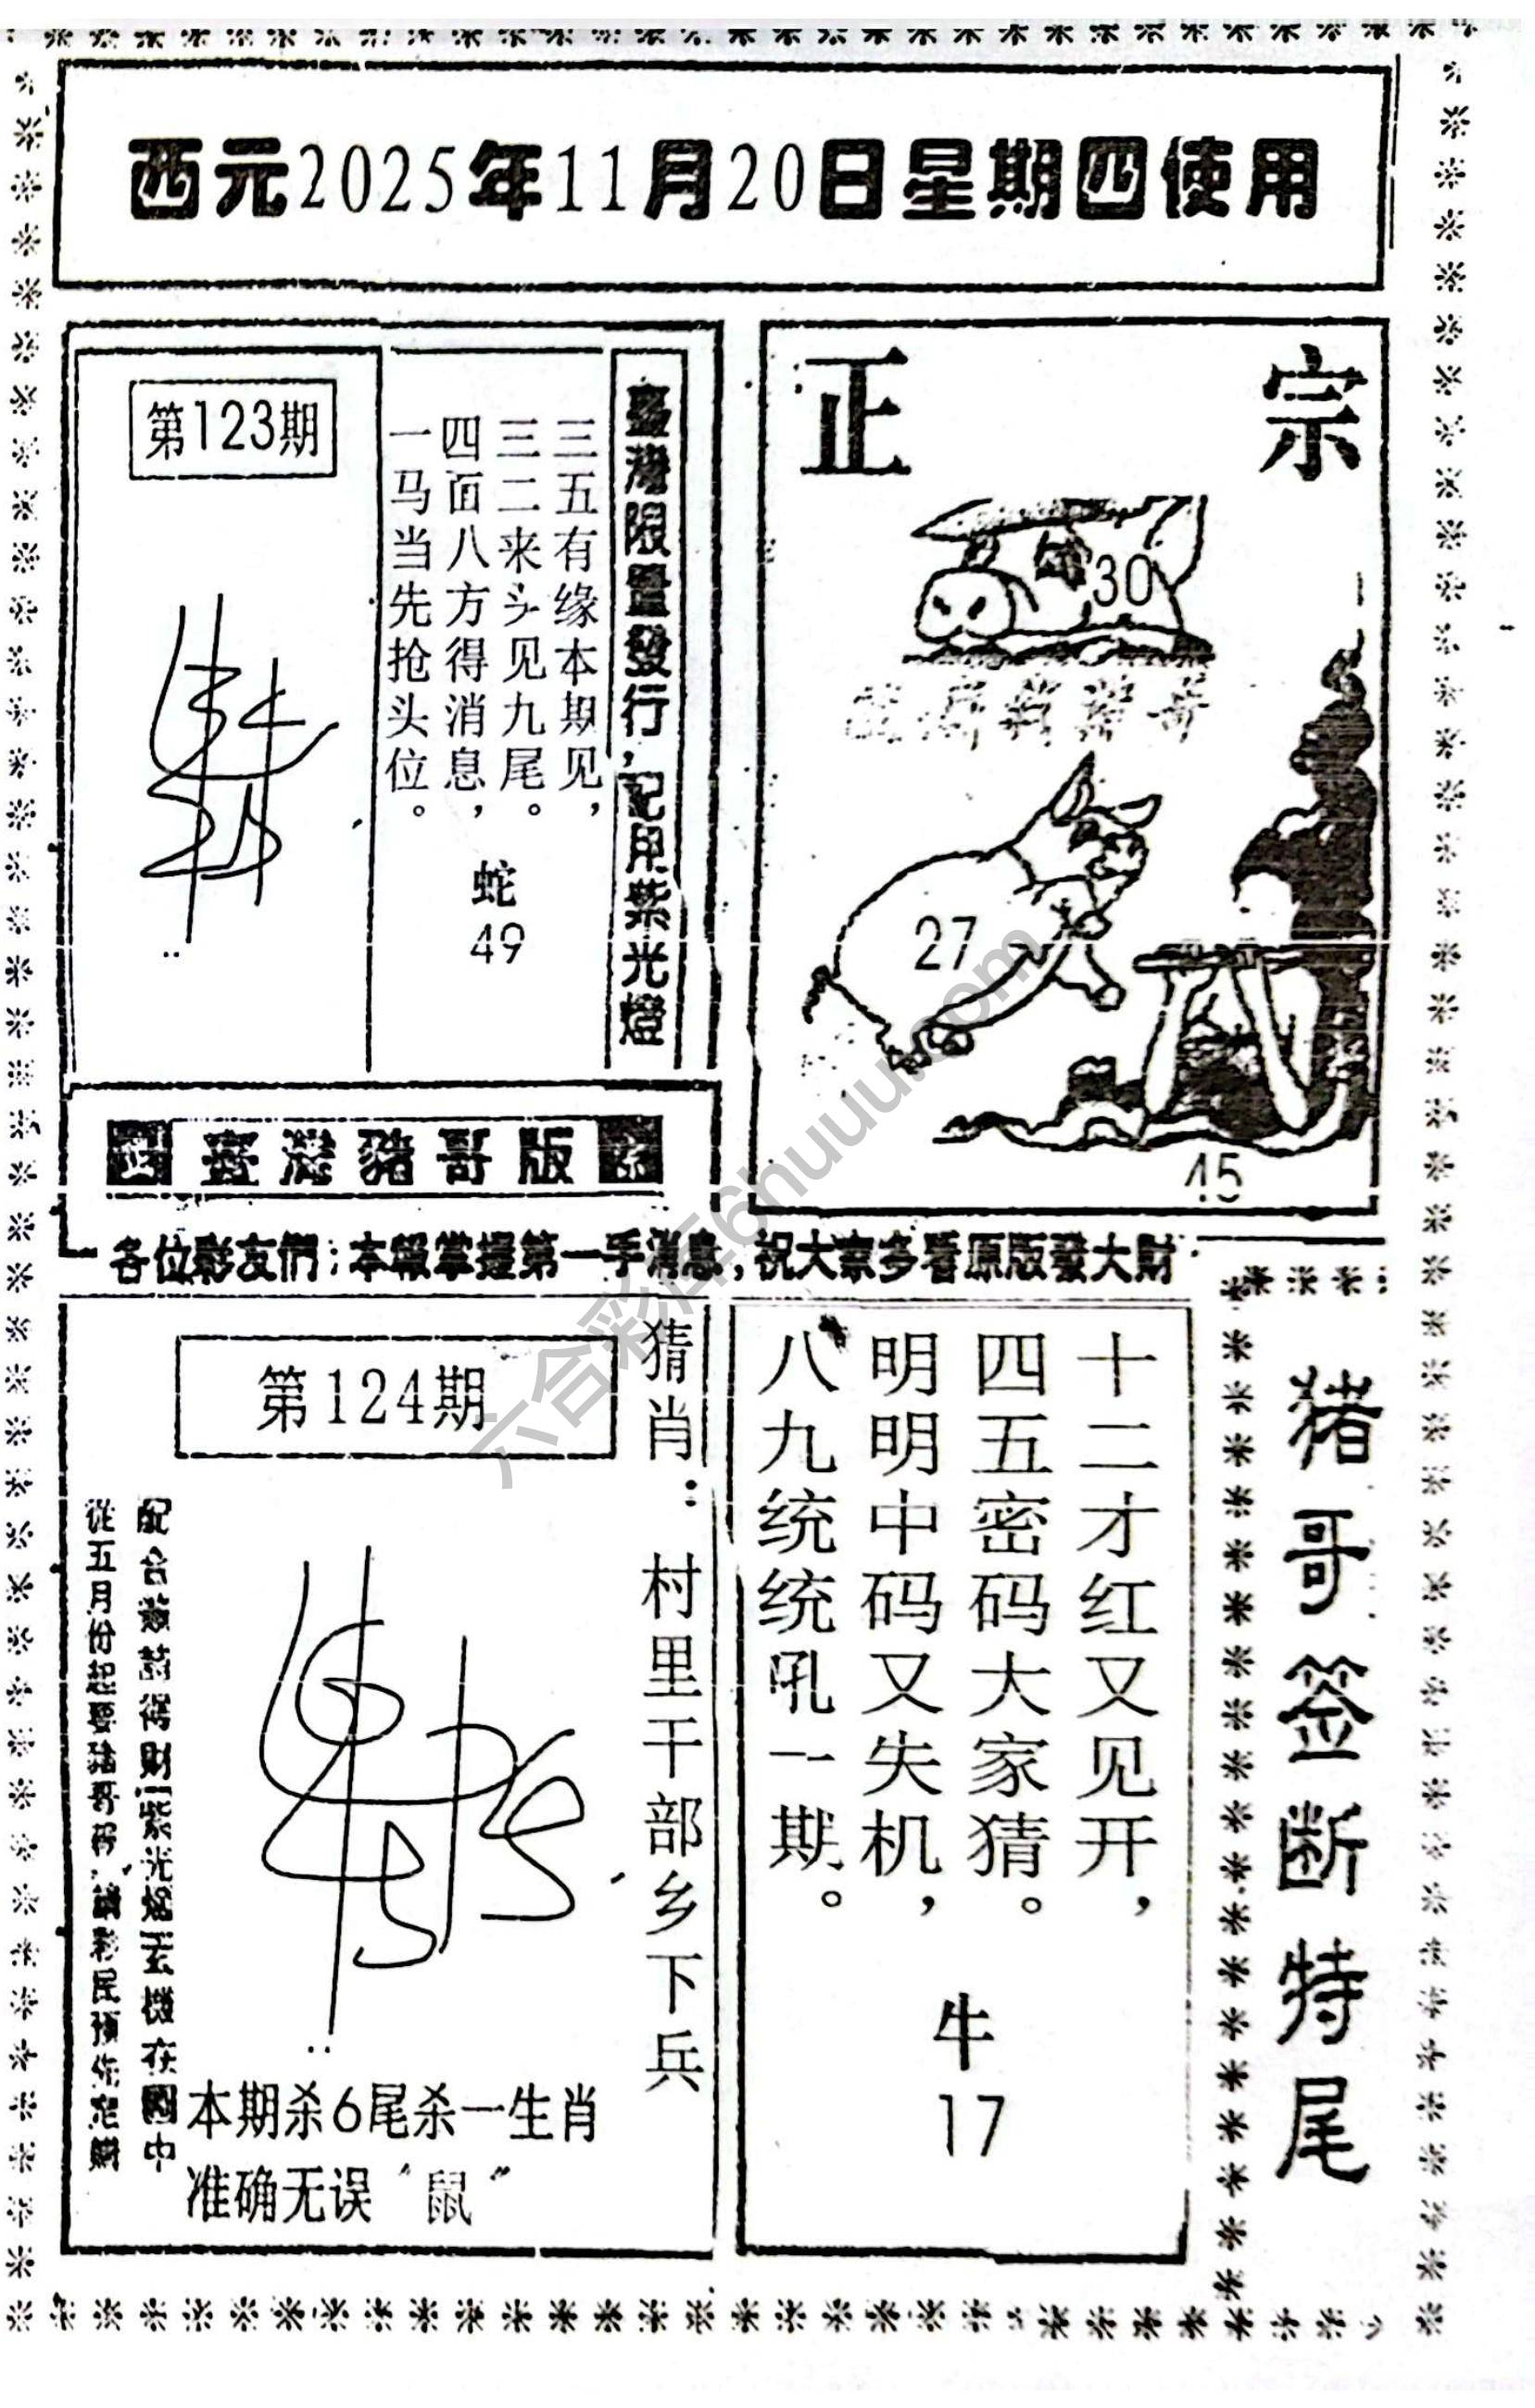 西元2025年11月20日星期四使用
第123期
三五有缘本期见，
三二来头见九尾。
四面八方得消息，
一马当先抢头位。
蛇
49
臺灣限量發行，配用紫光燈
正宗
30
27
45
臺灣豬哥版
各位彩友們：本報掌握第一手消息，祝大家多看原版發大財
第124期
猜肖：村里干部乡下兵
配合
得財 紫光燈玄機在圖中
從五月份起要
本期杀6尾杀一生肖
准确无误“鼠”
十二才红又见开，
四五密码大家猜。
明明中码又失机，
八九统统吼一期。
牛
17
猪哥签断特尾
六合彩库6huuu.com